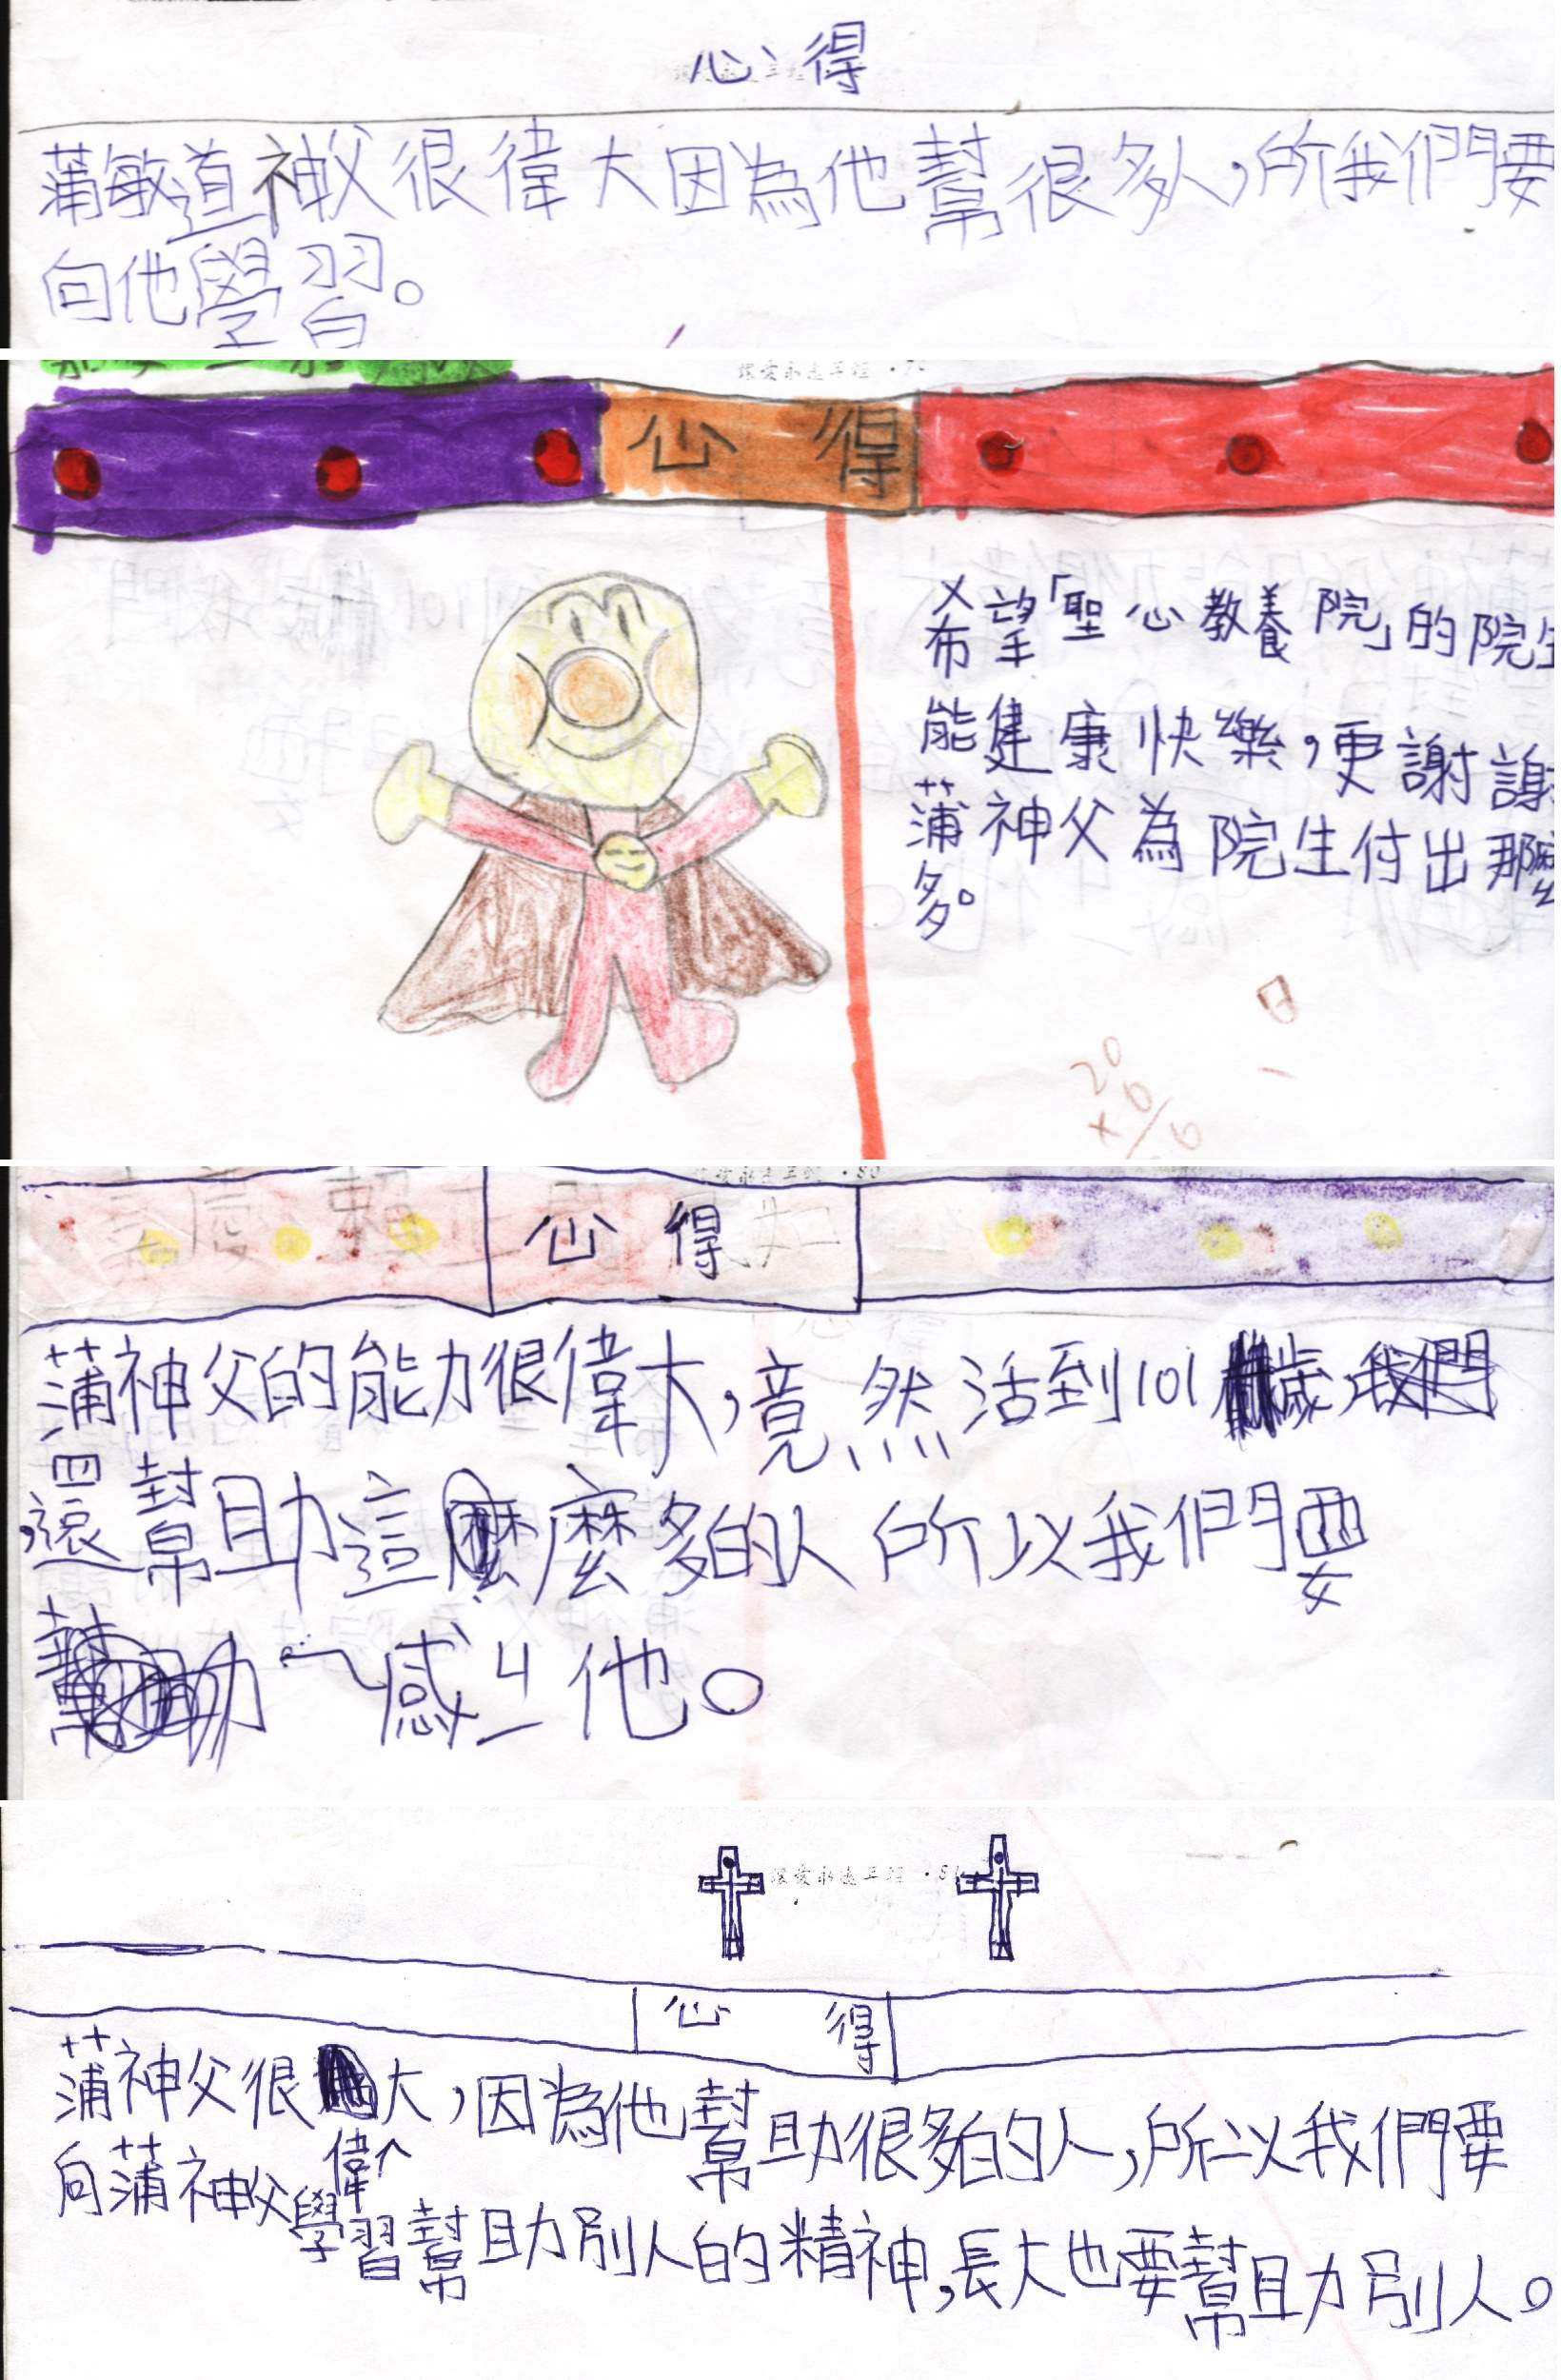 心得
蒲敏道神父很偉大因為他幫很多人，所我們要
向他學習。
心得
希望「聖心教養院」的院生
能健康快樂，更謝謝
蒲神父為院生付出那麼
多。
20
心得
蒲神父的能力很偉大，竟然活到101歲，
還幫助這麼多的人所以我們要
感ㄐ他。
心得
蒲神父很偉大，因為他幫助很多的人，所以我們要
向蒲神父學習幫助別人的精神，長大也要幫助別人。